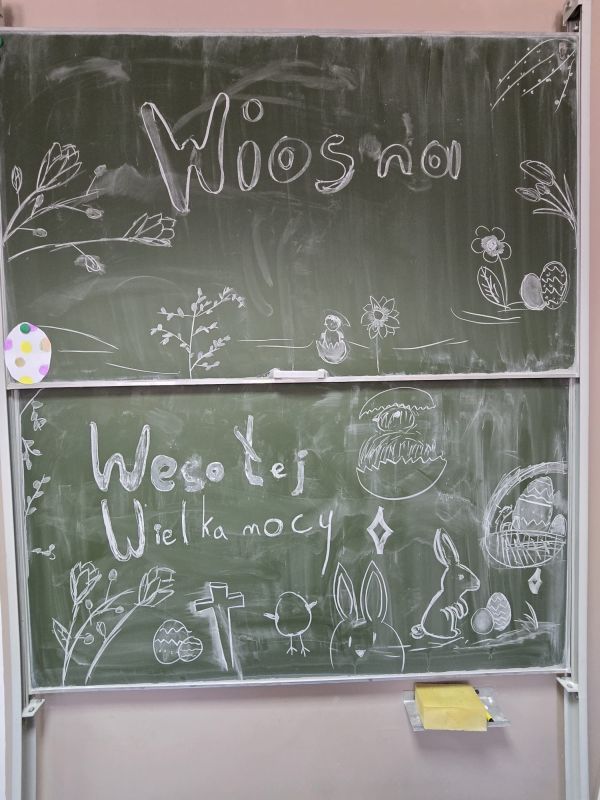 Wiosna
Wesołej
Wielkanocy